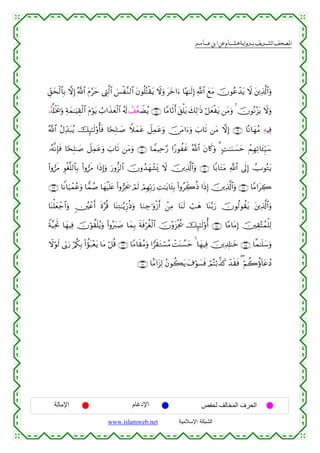 المصحف الشريف برواية هشام عن ابن عامر
وَالَّذِينَ لَا يَدْعُونَ مَعَ اللَّهِ إِلَٰهًا ءَاخَرَ وَلَا يَقْتُلُونَ النَّفْسَ الَّتِي حَرَّمَ اللَّهُ إِلَّا بِالْحَقِّ
وَلَا يَزْنُونَ ۚ وَمَن يَفْعَلْ ذَٰلِكَ يَلْقَ أَثَامًا يُضَعَّفُ لَهُ الْعَذَابُ يَوْمَ الْقِيَٰمَةِ وَيَخْلُدُ
فِيهِ مُهَانًا إِلَّا مَن تَابَ وَءَامَنَ وَعَمِلَ عَمَلًا صَٰلِحًا فَأُوْلَٰٓئِكَ يُبَدِّلُ اللَّهُ
سَيِّـَٔاتِهِمْ حَسَنَٰتٍ ۗ وَكَانَ اللَّهُ غَفُورًا رَّحِيمًا وَمَن تَابَ وَعَمِلَ صَٰلِحًا فَإِنَّهُ
يَتُوبُ إِلَى اللَّهِ مَتَابًا وَالَّذِينَ لَا يَشْهَدُونَ الزُّورَ وَإِذَا مَرُّوا بِاللَّغْوِ مَرُّوا
كِرَامًا وَالَّذِينَ إِذَا ذُكِّرُوا بِـَٔايَٰتِ رَبِّهِمْ لَمْ يَخِرُّوا عَلَيْهَا صُمًّا وَعُمْيَانًا
وَالَّذِينَ يَقُولُونَ رَبَّنَا هَبْ لَنَا مِنْ أَزْوَٰجِنَا وَذُرِّيَّٰتِنَا قُرَّةَ أَعْيُنٍ وَاجْعَلْنَا
لِلْمُتَّقِينَ إِمَامًا أُوْلَٰٓئِكَ يُجْزَوْنَ الْغُرْفَةَ بِمَا صَبَرُوا وَيُلَقَّوْنَ فِيهَا تَحِيَّةً
وَسَلَٰمًا خَٰلِدِينَ فِيهَا ۚ حَسُنَتْ مُسْتَقَرًّا وَمُقَامًا قُلْ مَا يَعْبَؤُا بِكُمْ رَبِّي لَوْلَا
دُعَآؤُكُمْ ۖ فَقَدْ كَذَّبْتُمْ فَسَوْفَ يَكُونُ لِزَامًا
الحرف المخالف لحفص الإدغام الإمالة
الشبكة الإسلامية www.islamweb.net